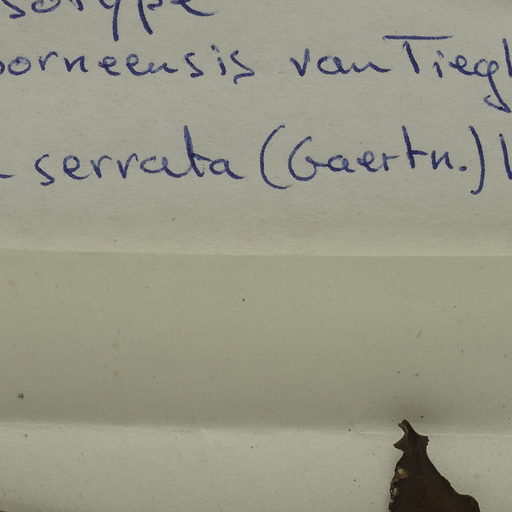 sotype
borneensis van Tiegh
serrata (Gaertn.)